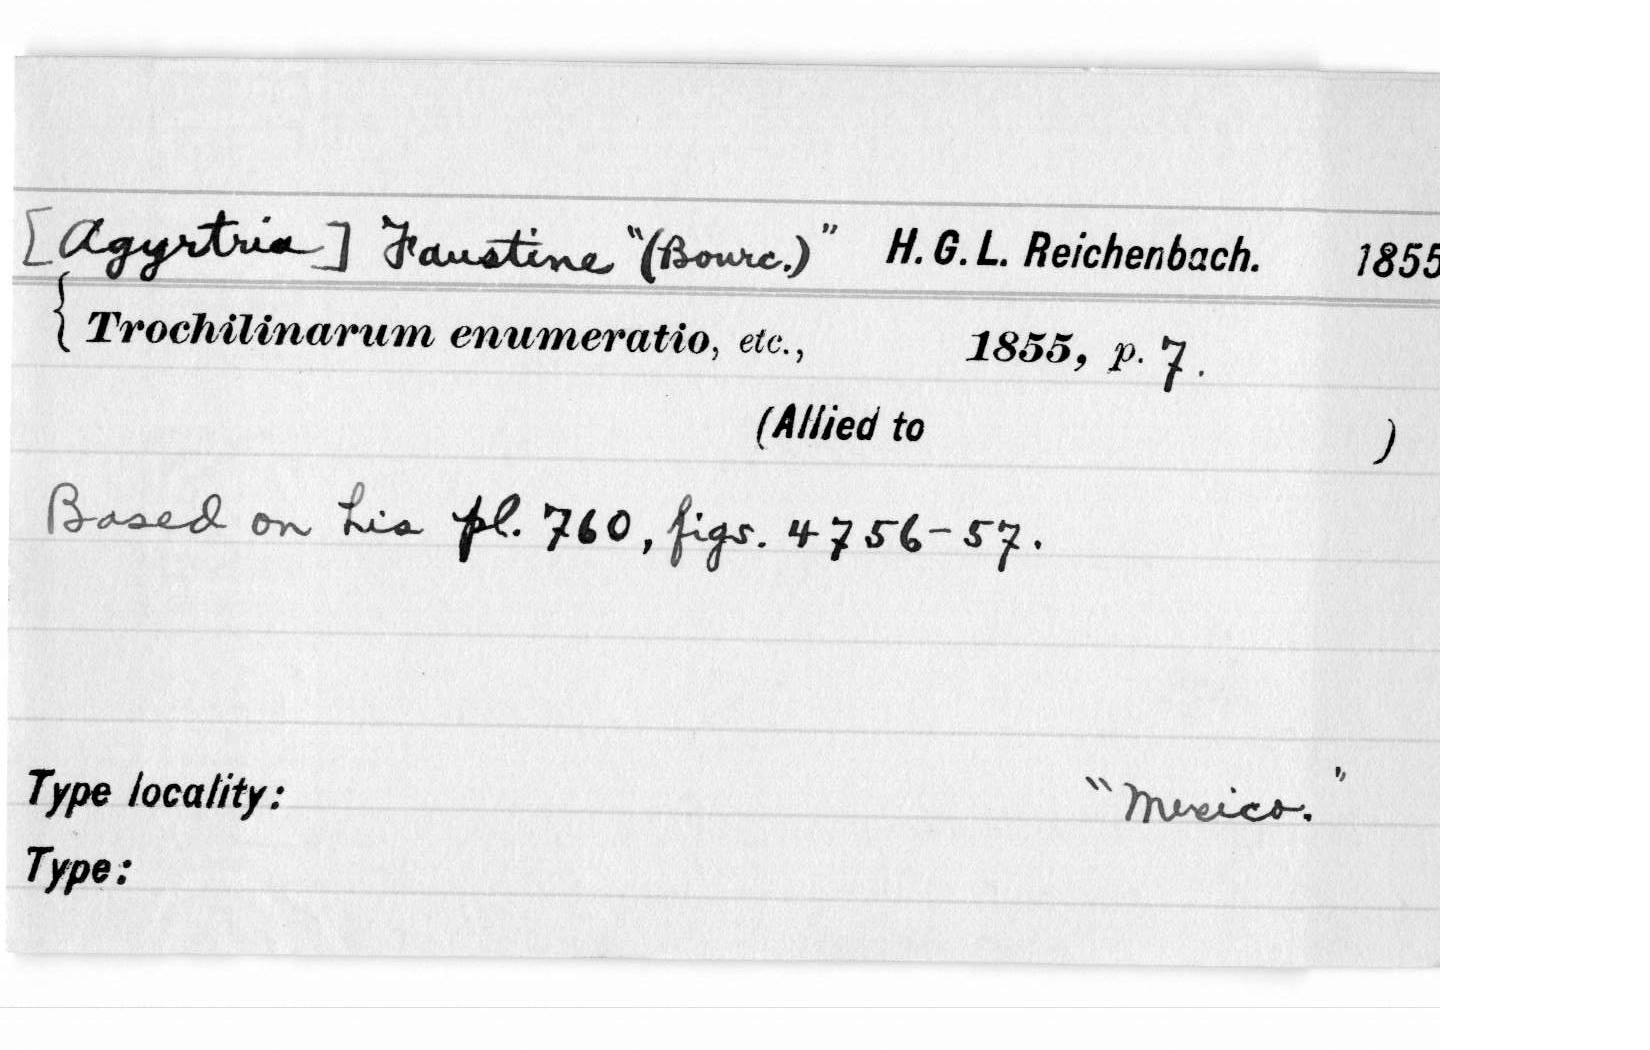 [Agyrtria] Faustine "(Bourc.)" H. G. L. Reichenbach. 1855
{ Trochilinarum enumeratio, etc., 1855, p. 7.
(Allied to )
Based on his pl. 760, figs. 4756-57.
Type locality: "Mexico."
Type: